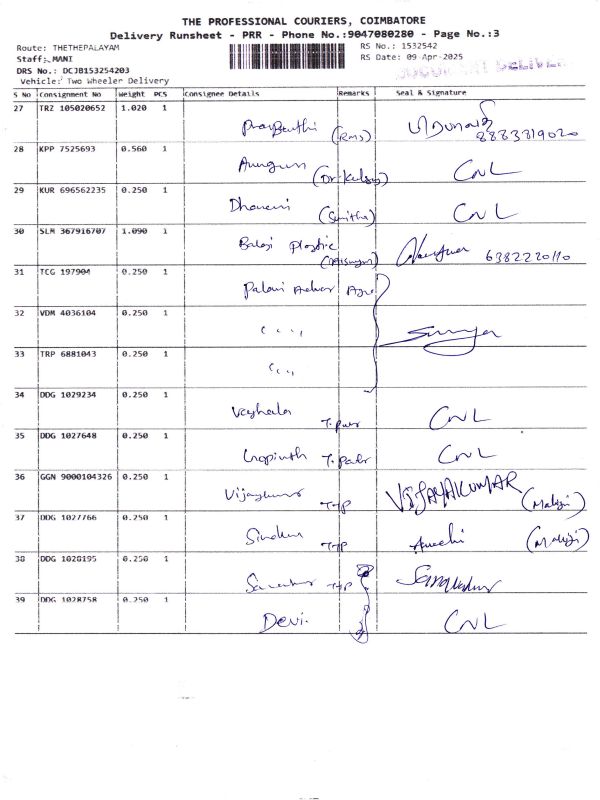 THE PROFESSIONAL COURIERS, COIMBATORE
Delivery Runsheet - PRR - Phone No.:9047080280 - Page No.:3
Route: THETHEPALAYAM
RS No.: 1532542
Staff: MANI
RS Date: 09-Apr-2025
DRS No.: DCJB153254203
Vehicle: Two Wheeler Delivery
S No Consignment No Weight PCS Consignee Details Remarks Seal & Signature
27 TRZ 105020652 1.020 1
(RMS) 8883319020
28 KPP 7525693 0.560 1
CNL
29 KUR 696562235 0.250 1
CNL
30 SLM 367916707 1.090 1
Balaji Plastic 6382220110
31 TCG 197904 0.250 1
Palani
32 VDM 4036104 0.250 1
33 TRP 6881043 0.250 1
34 DDG 1029234 0.250 1
CNL
35 DDG 1027648 0.250 1
Gopinath CNL
36 GGN 9000104326 0.250 1
Vijaykumar TYP VIJAYAKUMAR
37 DDG 1027766 0.250 1
TYP
38 DDG 1028195 0.250 1
TYP
39 DDG 1028758 0.250 1
Devi. CNL